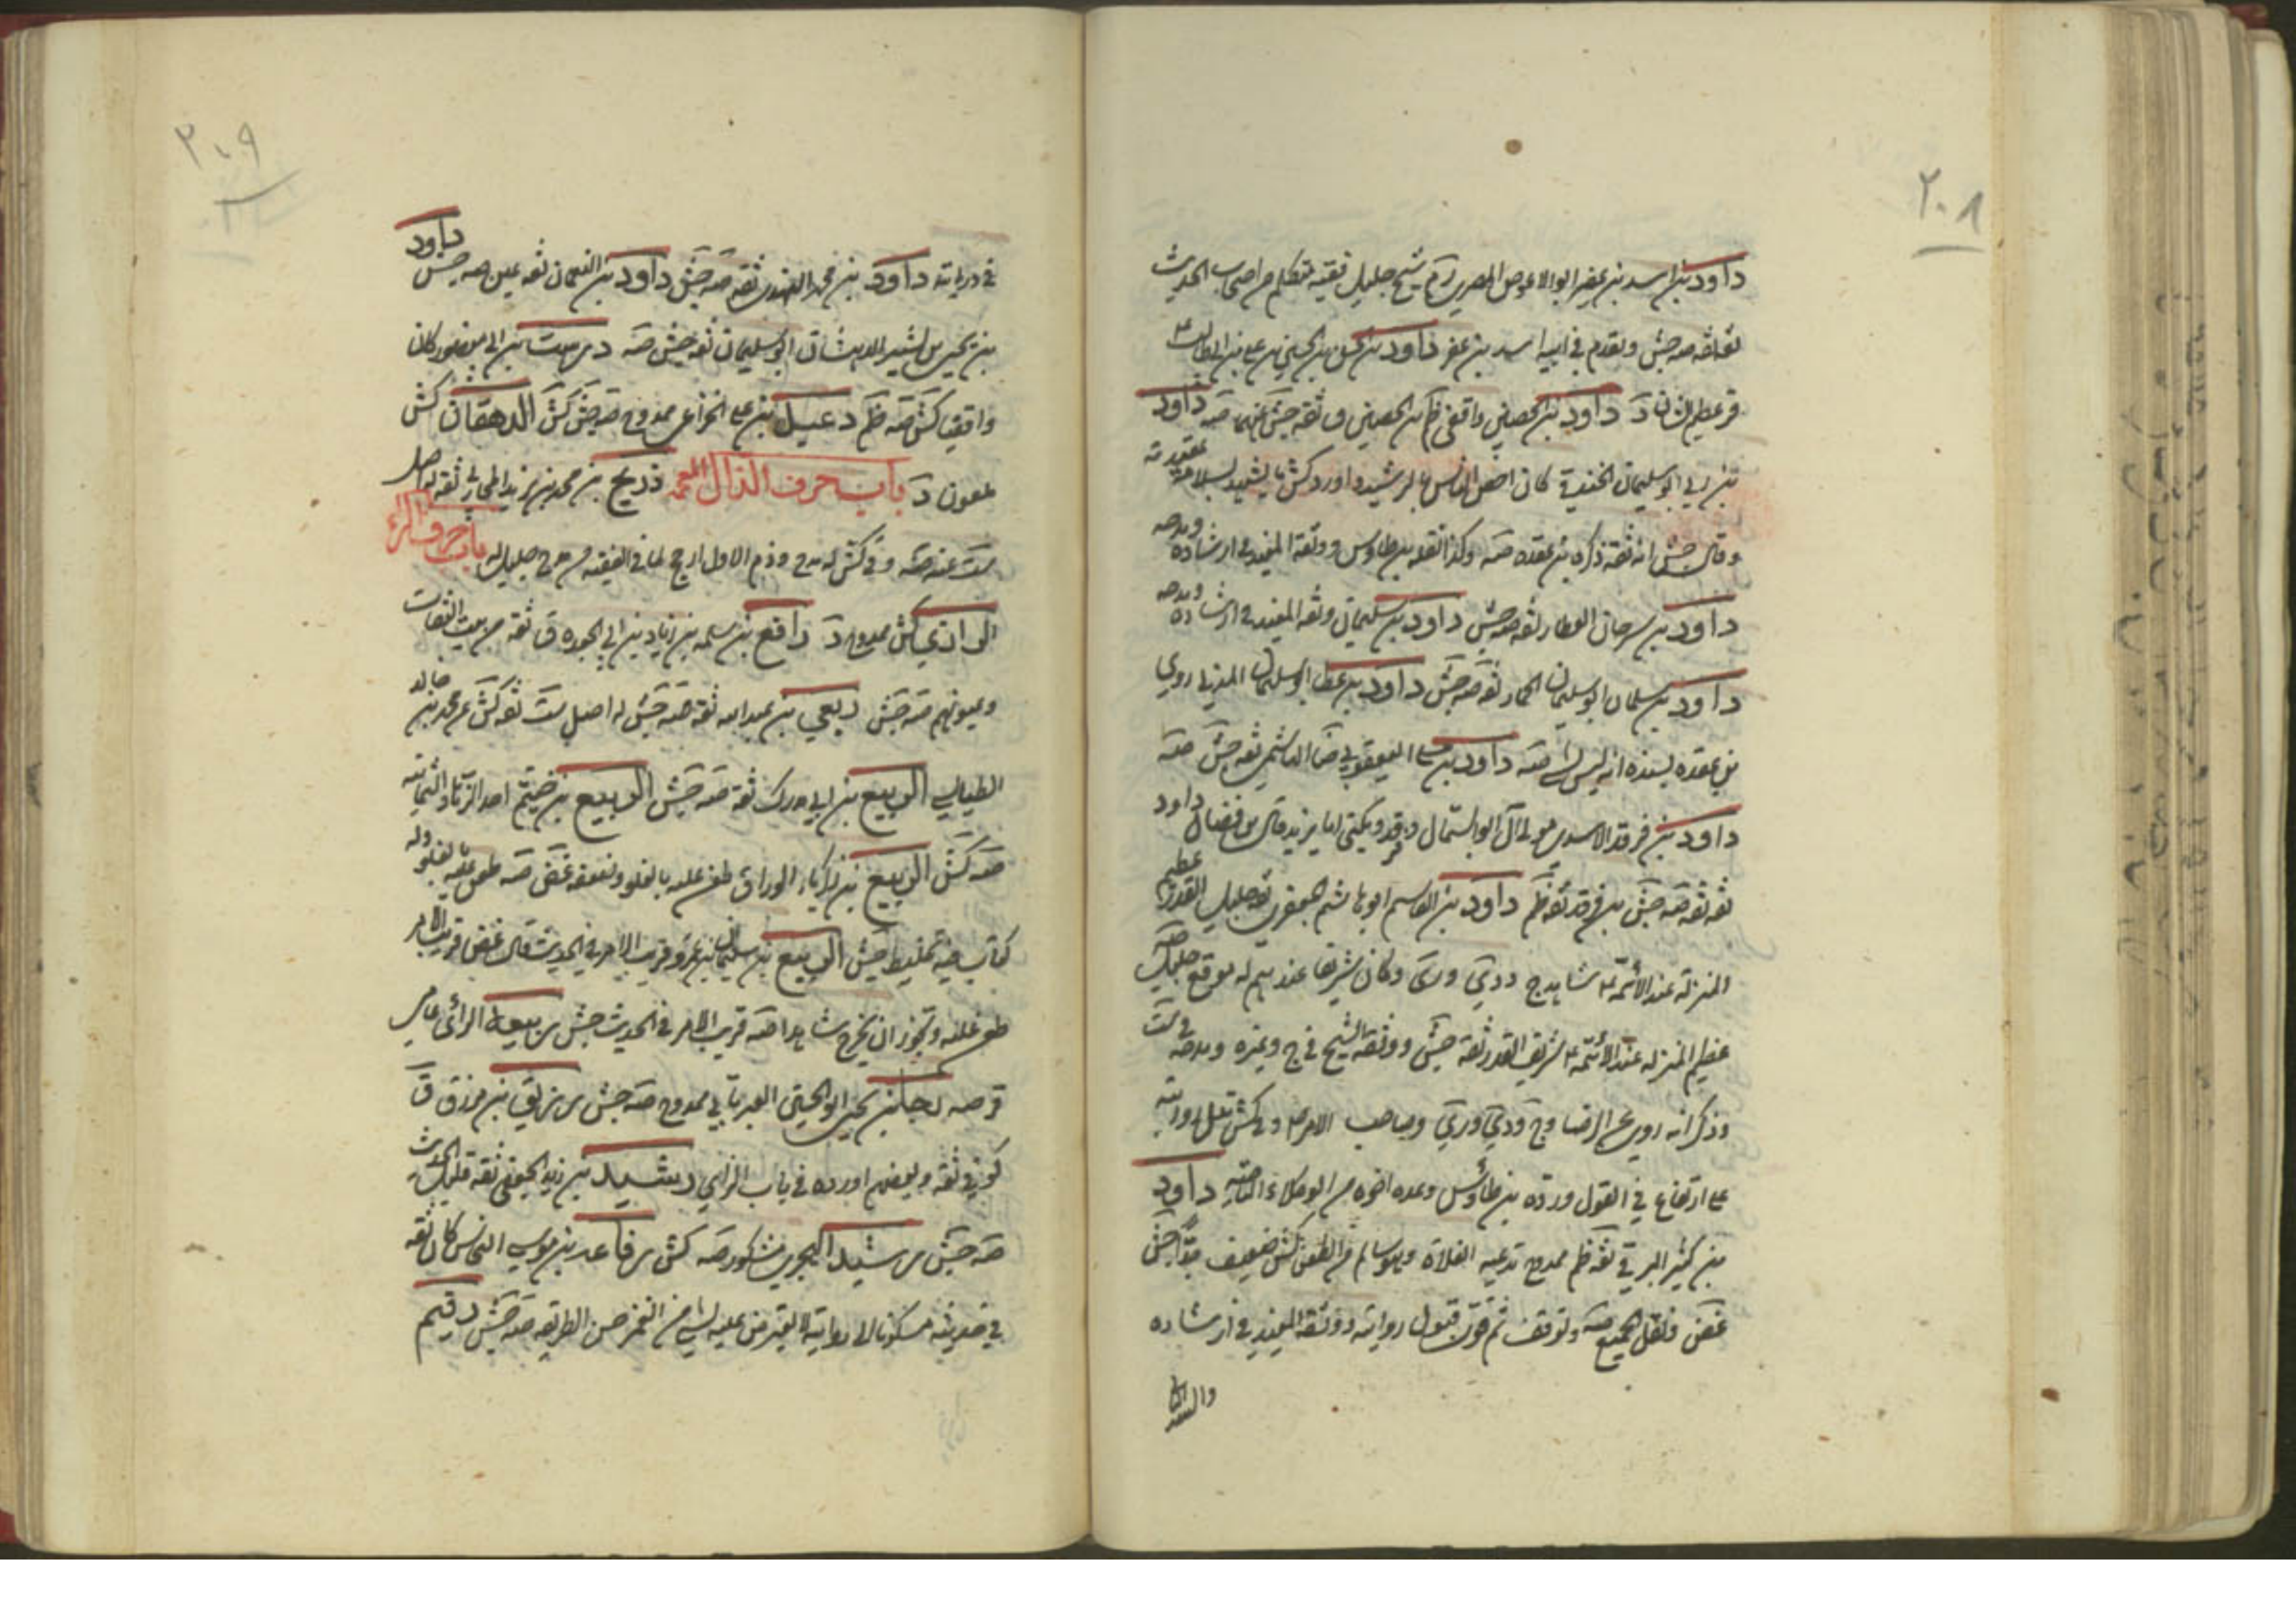 ٢٠٨
داود بن اسد بن عفير ابو الاحوص المصري ره شيخ جليل فقيه متكلم من اصحاب الحديث
ثقة ثقة صه جش وتقدم في ابيه اسد بن عفر داود بن الحسن بن الحسن بن علي بن ابيطالب ع
ق عظيم الشان د داود بن الحصين واقفي ظم بن الحصين ق ثقة جش عنهما صه داود
بن زربي ابو سليمان الخندقي كان اخص الناس بالرشيد واورد كش ما يشهد بسلامة عقيدته
وقال جش انه ثقة ذكره بن عقده صه وكذا نقله بن طاوس ووثقه المفيد في ارشاده ومدحه
داود بن سرحان العطار ثقه صه جش داود بن سليمان وثقه المفيد في ارشاده ومدحه
داود بن سليمان ابو سليمان الحمار ثقة صه جش داود بن عطا ابو سليمان المدني روي
بن عقده بسنده انه ليس بشي صه داود بن علي اليعقوبي ضا الهاشمي ثقة جش صه
داود بن فرقد الاسدي مولى آل ابو السمال وفرقد ويكنى ابا يزيد قال بن فضال داود
ثقه ثقه صه جش بن فرقد ثقه ظم داود بن القاسم ابو هاشم الجعفري ثقه جليل القدر عظيم
المنزلة عند الأئمة ع شاهد ج ودي وري وكان شريفا عندهم له موقع جليل صه
عظيم المنزله عند الأئمه ع شريف القدر ثقة جش ووثقه الشيخ في ج وغيره ومدحه في ست
وذكر انه روى عن الرضا وج ودي وري وصاحب الامر ع وفي كش تدل روايته
على ارتفاع في القول ورده بن طاوس وعده اخوه من الوكلاء الناحيه داود
بن كثير الرقي ثقه ظم ممدوح تدعيه الغلاة وهو سالم من الطعن كش ضعيف جدا جش
غض ونقل الجميع صه وتوقف ثم قوى قبول روايته ووثقه المفيد في ارشاده
٢٠٩
في درياته داود بن محمد النهدي ثقه صه جش داود بن النعمان ثقه عين صه جش داود
بن يحيى بن بشير الدهقان ابو سليمان ثقه جش صه درست بن ابي منصور كان
واقفيا كش صه ظم دعبل بن علي الخزاعي ممدوح صه جش كش الدهقان كش
ملعون د باب حرف الذال المعجمه ذريح بن محمد بن يزيد المحاربي ثقه له اصل
ست عنه صه وفي كش له مدح وذم الاول ارجح لما في الفقيه من مدح جليل له باب حرف الراء
الوابشي كش ممدوح د رافع بن سلمه بن زياد بن ابي الجعد ق ثقه من بيت الثقات
وعيونهم صه جش ربعي بن عبد الله ثقه صه جش له اصل ست ثقه كش عن محمد بن خالد
الطيالسي الربيع بن ابي مدرك ثقة صه جش الربيع بن خيثم احد الزهاد الثمانيه
صه كش الربيع بن زكريا الوراق طعن عليه بالغلو وضعفه غض صه طعن عليه بالغلو وله
كتاب فيه تخليط جش الربيع بن سليمان بن عمرو قريب الامر في الحديث قال غض قريب الامر
طعن عليه ويجوز ان يخرج شاهدا صه قريب الامر في الحديث جش ربيعه الرائ عامي
ق صه رجا بن يحيى ابو الحسين العبرتائي ممدوح صه جش رزيق بن مرزوق ق
كوفي ثقه وبعضهم اورده في باب الزاي رشيد بن زيد الجعفي ثقه قليل الحديث
صه جش رشيد الهجري مشكور صه كش رفاعه بن موسى النخاس كان ثقه
في حديثه مسكونا الى روايته لا يعترض عليه بشي من الغمز حسن الطريقه صه جش رقيم